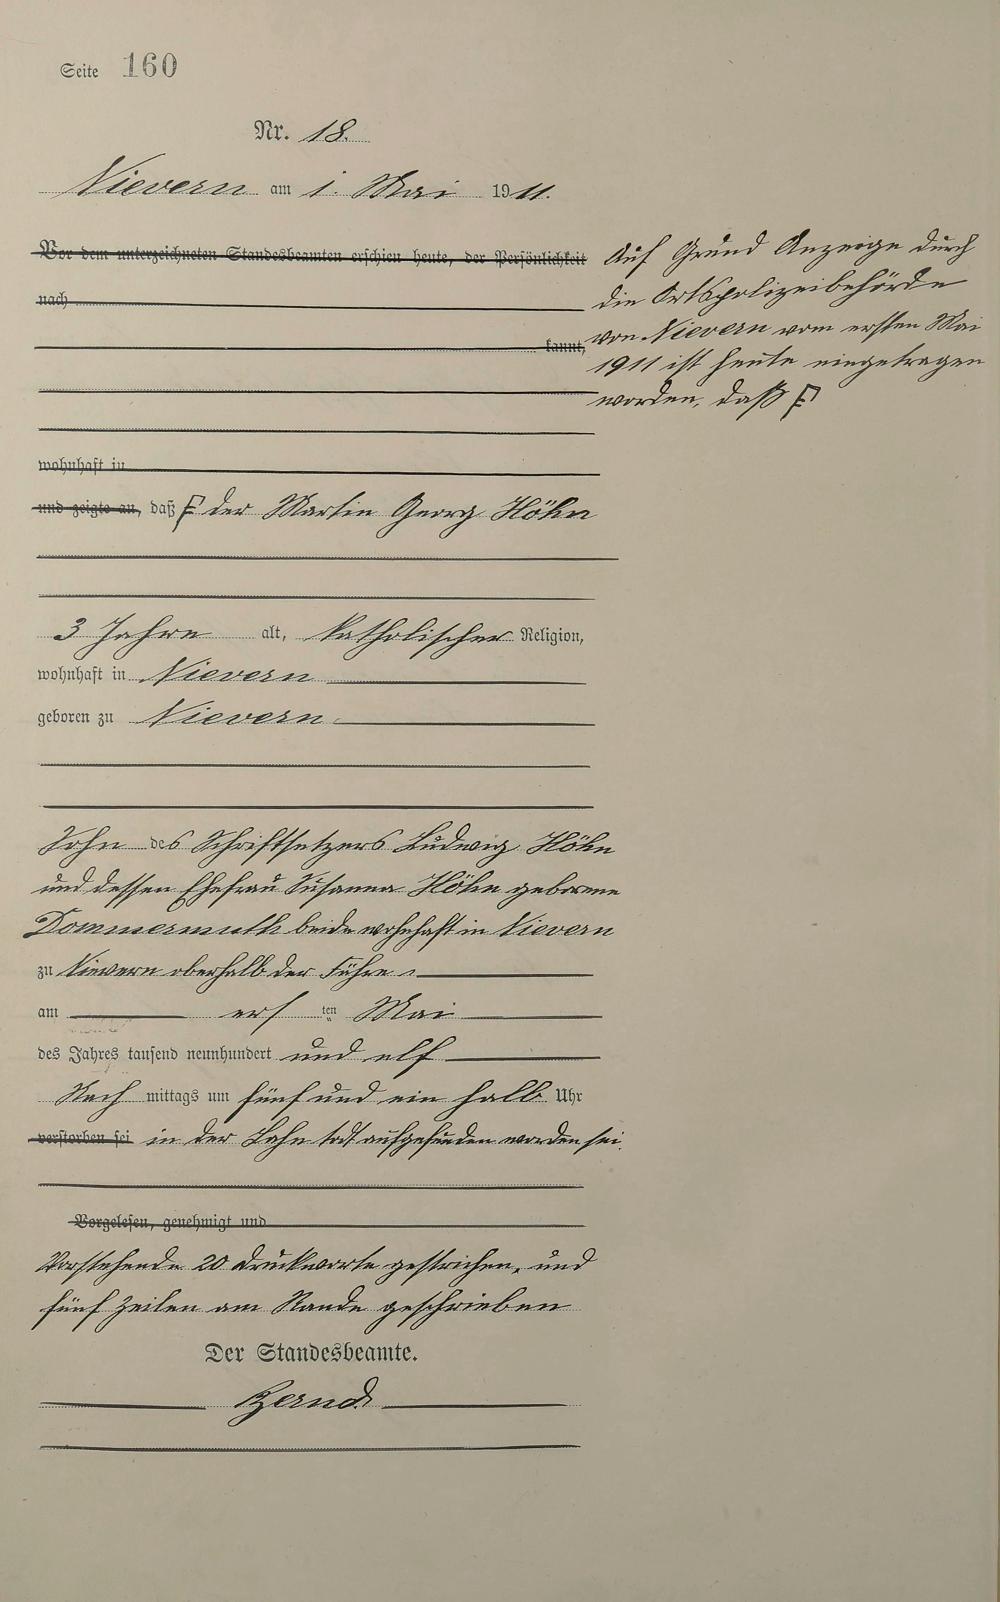 Seite 160
Nr. 18.
Nievern am 1. Mai 1911.
Vor dem unterzeichneten Standesbeamten erschien heute, der Persönlichkeit
nach
kannt,
Auf Grund Anzeige durch
die Ortspolizeibehörde
von Nievern vom ersten Mai
1911 ist heute eingetragen
worden, daß
wohnhaft in
und zeigte an, daß der Martin Georg Höhn
3 Jahre alt, katholischer Religion,
wohnhaft in Nievern
geboren zu Nievern
Sohn des Schriftsetzers Ludwig Höhn
und dessen Ehefrau Susanna Höhn geborene
Dommermuth beide wohnhaft in Nievern
zu Nievern oberhalb der Fähre
am ersten Mai
des Jahres tausend neunhundert und elf
Nach mittags um fünf und ein halb Uhr
verstorben sei in der Lahn todt aufgefunden worden sei.
Vorgelesen, genehmigt und
Vorstehende 20 Druckworte gestrichen, und
fünf Zeilen am Rande geschrieben
Der Standesbeamte.